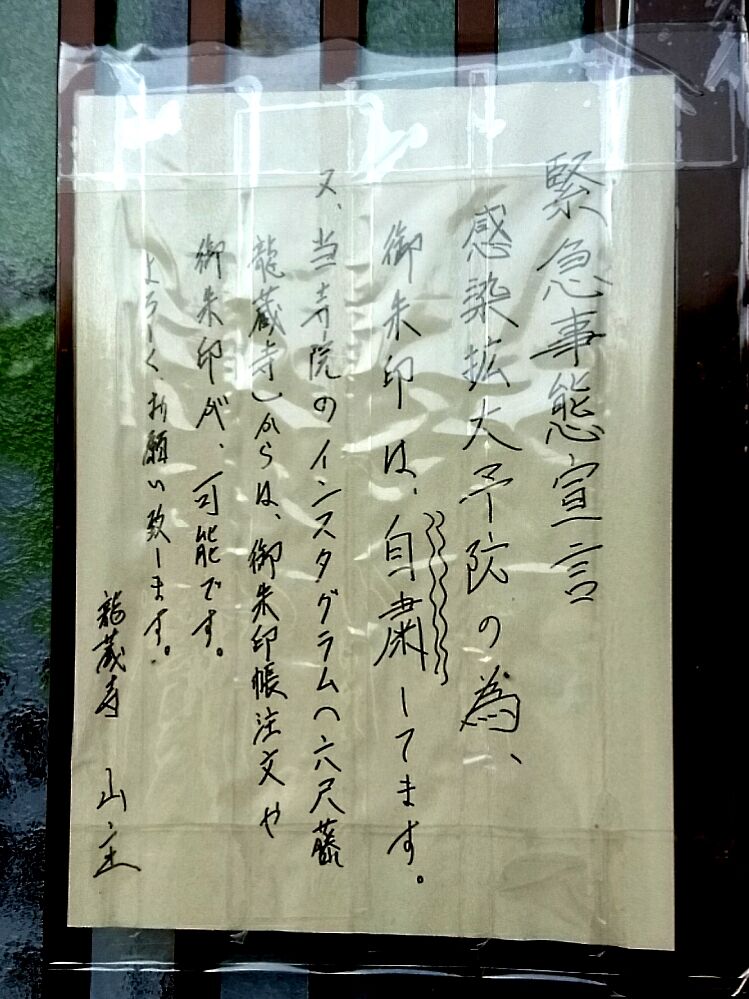 緊急事態宣言
感染拡大予防の為、
御朱印は、自粛してます。
又、当寺院のインスタグラム(六尺藤
龍蔵寺)からは、御朱印帳注文や
御朱印が、可能です。
よろしくお願い致します。
龍蔵寺 山主